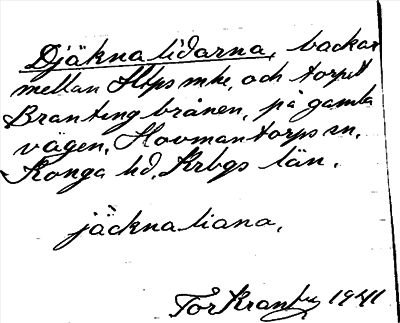 Djäknalidarna, backar
mellan Htps mke, och torpet
Brantingbrånen, på gamla
vägen, Hovmantorps sn.
Konga hd, Krbgs län.
jäcknaliana.
Tor 1941